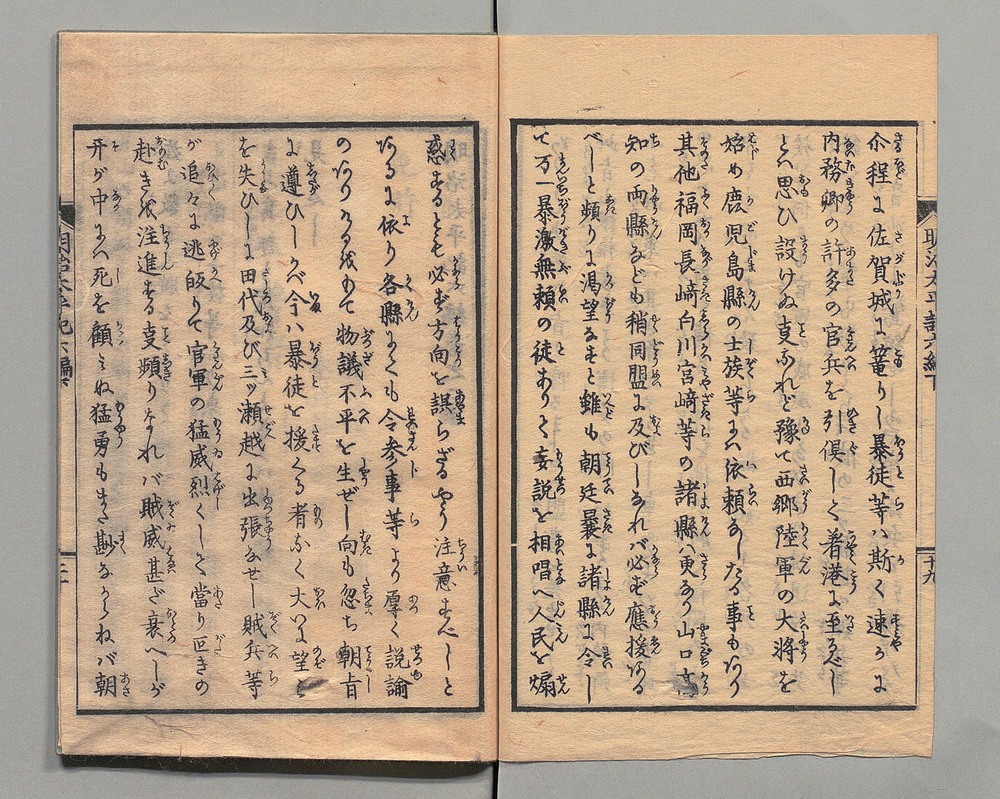 介程に佐賀城に篭りし暴徒等ハ斯く速かに
内務卿の許多の官兵を引倶して着港に至るべし
とハ思ひ設けぬ事なれど豫て西郷陸軍の大将を
始め鹿児島縣の士族等にハ依頼なしたる事もあり
其他福岡長﨑白川宮﨑等の諸縣ハ更なり山口高
知の両縣なども稍同盟に及びしなれバ必ず應援ある
べしと頻りに渇望なすと雖も朝廷曩に諸縣に令し
て万一暴激無頼の徒ありて妄説を相唱へ人民を煽
惑するとも必ず方向を誤らざるやう注意すべしと
あるに依り各縣にても令参事等より厚く説諭
のありけるをもて物議不平を生ぜし向も忽ち朝旨
に遵ひしかバ今ハ暴徒を援くる者なく大いに望み
を失ひしに田代及び三ッ瀬越に出張なせし賊兵等
が追々に逃皈りて官軍の猛威烈くして當り叵きの
赴きを注進する事頻りなれバ賊威甚だ衰へしが
开が中にハ死を顧みぬ猛勇もまた尠なからねバ朝
明治太平記六編下
十九
明治太平記六編下